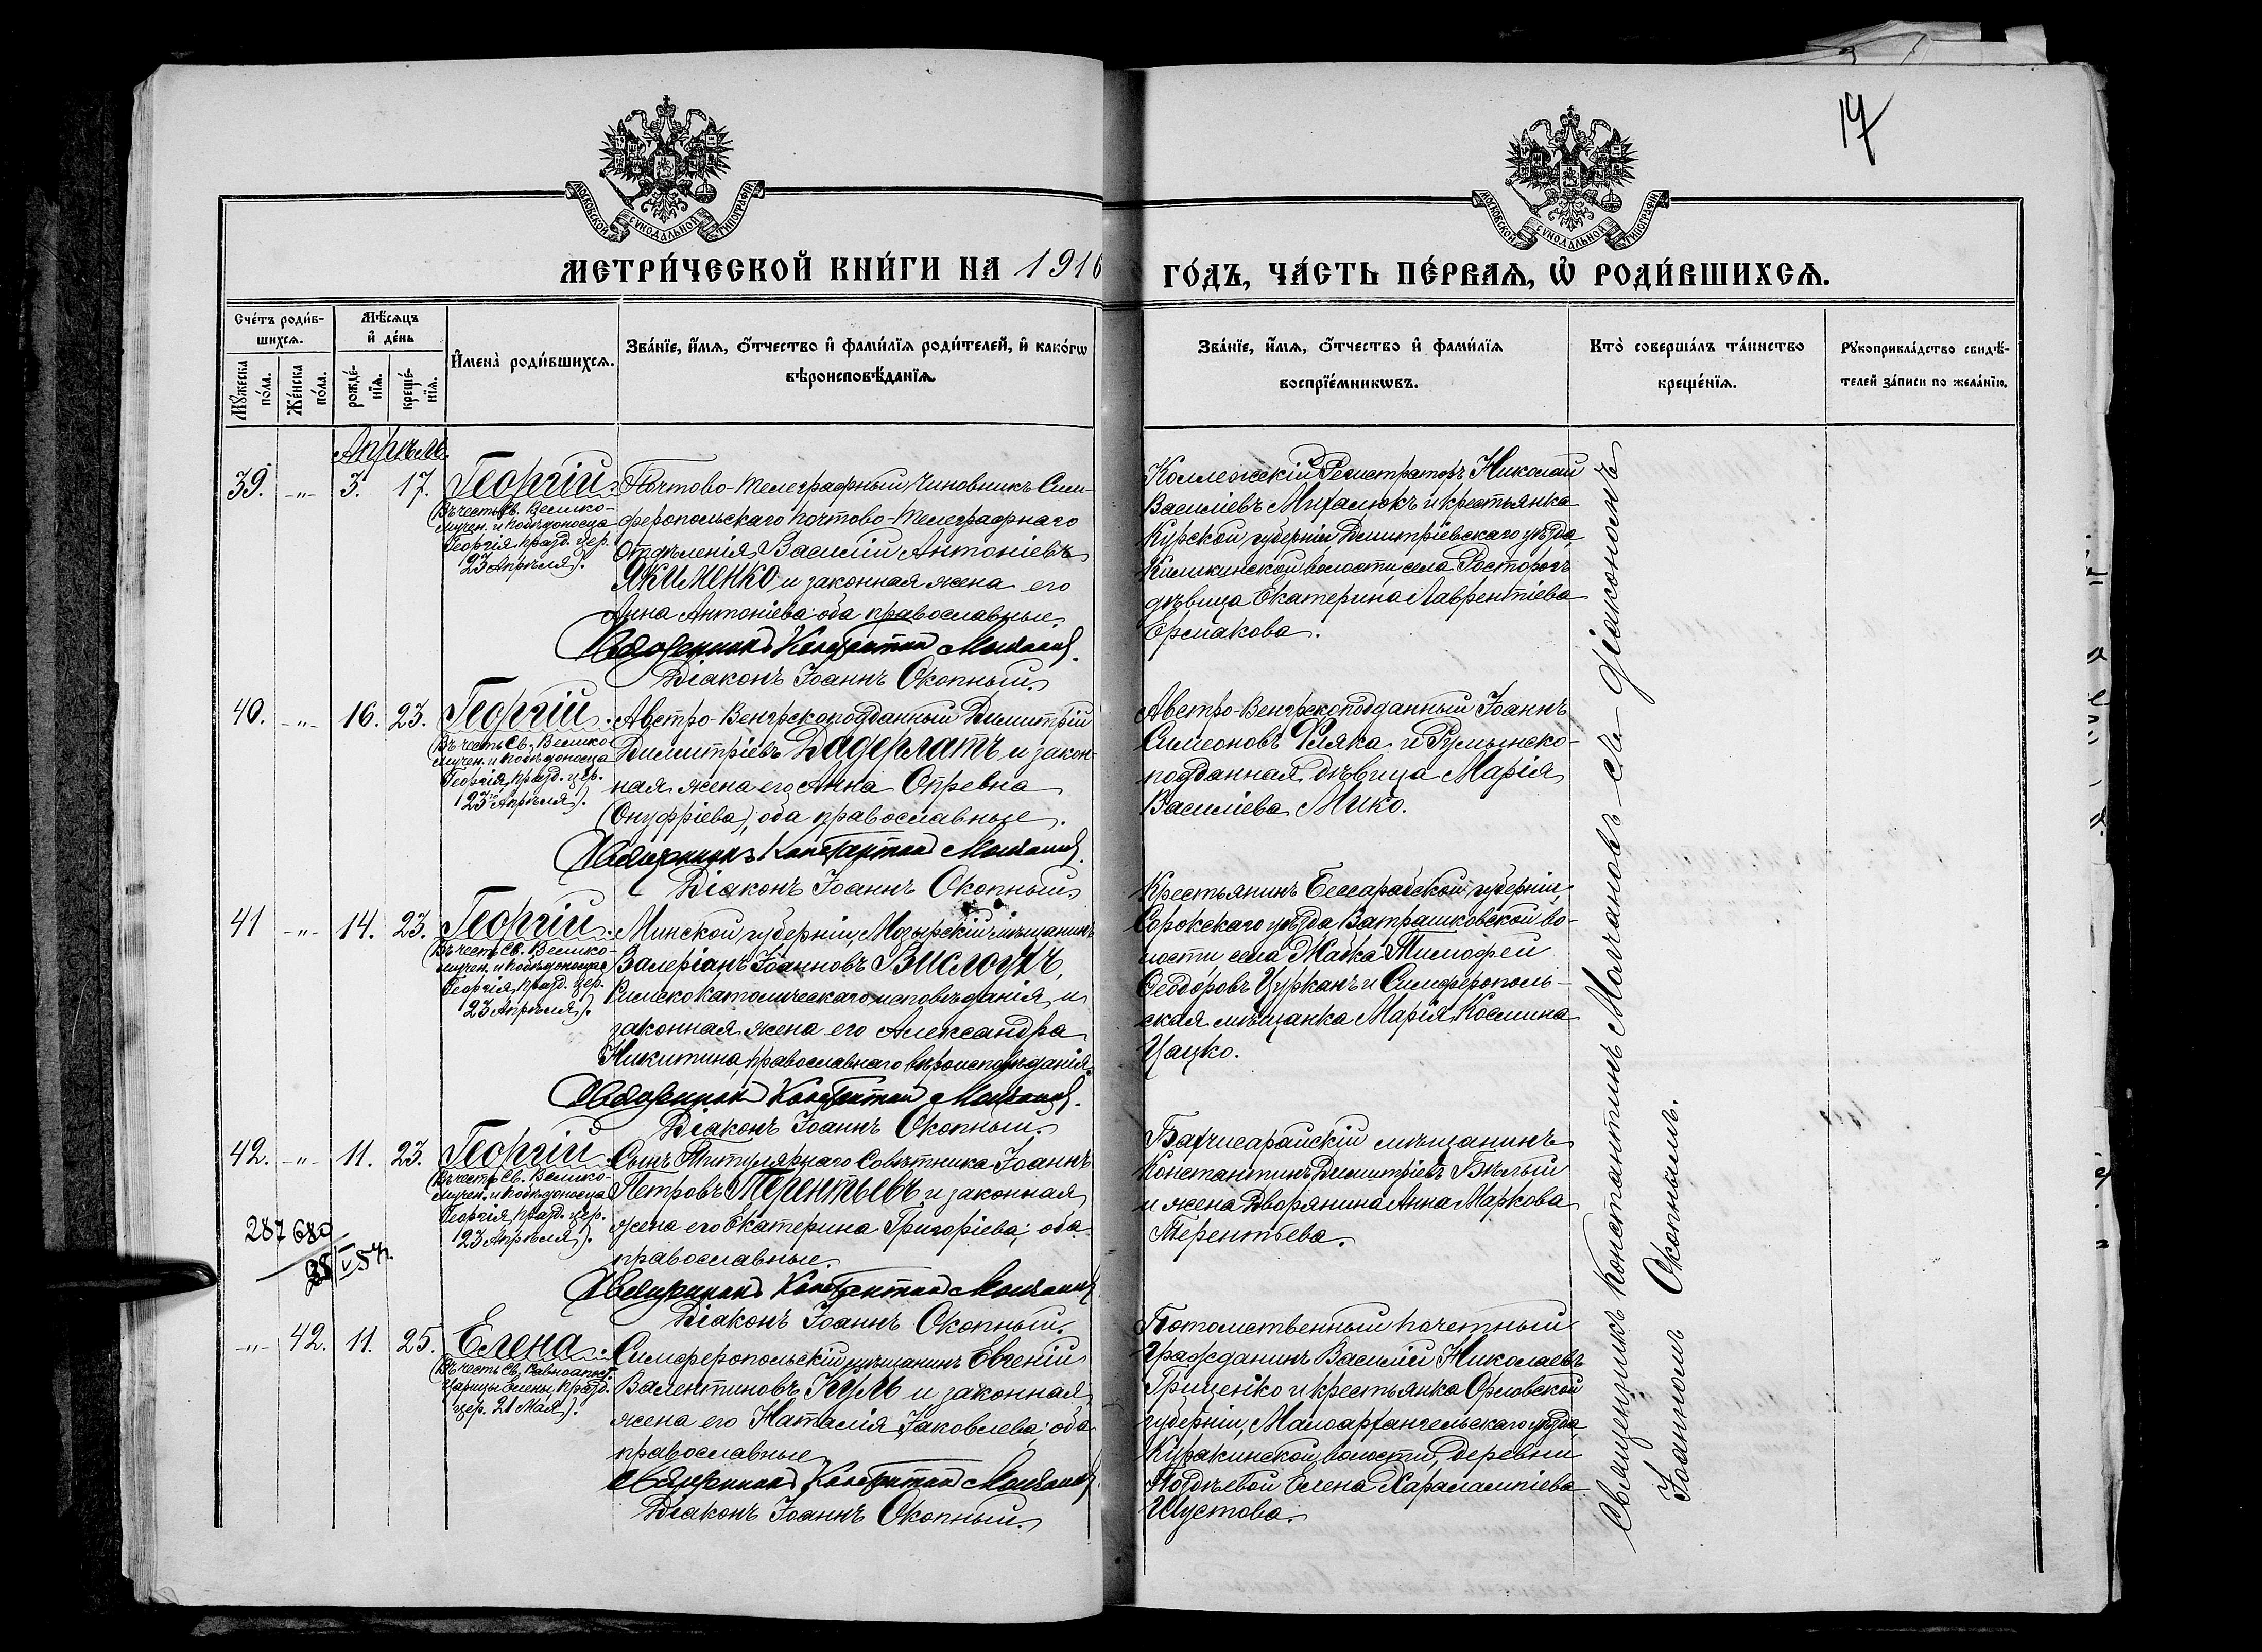 17
МОСКОВСКОЙ СУНОДАЛЬНОЙ ТИПОГРАФІИ
МОСКОВСКОЙ СУНОДАЛЬНОЙ ТИПОГРАФІИ
МЕТРИ́ЧЕСКОЙ КНИ́ГИ НА 1916
ГО́ДЪ, ЧА́СТЬ ПЕ́РВАѦ, Ѡ҆ РОДИ́ВШИХСѦ.
Сче́тъ роди́в-
шихсѧ.
Мꙋ́жеска по́ла.
Же́нска по́ла.
Мѣ́сѧцъ
и҆ де́нь
рожде́-
нїѧ.
креще́-
нїѧ.
И҆мена̀ роди́вшихсѧ.
Зва́нїе, и҆́мѧ, ѻ҆́тчество и҆ фами́лїѧ роди́телей, и҆ како́гѡ
вѣроисповѣ́данїѧ.
Зва́нїе, и҆́мѧ, ѻ҆́тчество и҆ фами́лїѧ
воспрїе́мникѡвъ.
Кто̀ соверша́лъ та́инство
креще́нїѧ.
Рꙋкоприкла́дство свидѣ́-
телей за́писи по жела́нїю.
Апрѣль.
39. -"- 3. 17. Георгій.
(Въ честь Св. Велико-
мучен. и побѣдоносца
Георгія, празд. цер.
23 Апрѣля).
Почтово-Телеграфный Чиновникъ Сим-
феропольскаго Почтово-Телеграфнаго
Отдѣленія Василій Антоніевъ
ЯКИМЕНКО и законная жена его
Анна Антоніева: оба православные
Священникъ Константинъ Молчановъ.
Діаконъ Іоаннъ Окопный.
Коллежскій Регистраторъ Николай
Василіевъ Михалюкъ и крестьянка
Курской губерніи Димитріевскаго уѣзда,
волости, села Расторогъ
дѣвица Екатерина Лаврентіева
Ермакова.
40. -"- 16. 23. Георгій.
(Въ честь Св. Велико-
мучен. и побѣдоносца
Георгія, празд. цер.
23го Апрѣля).
Австро-Венгрскоподданный Димитрій
Димитріевъ Дадерлатъ и закон-
ная жена его Анна Опревна
(Онуфріева), оба православные.
Священникъ Константинъ Молчановъ.
Діаконъ Іоаннъ Окопный
Австро-Венгрскоподданный Іоаннъ
Симеоновъ Фляка и Румынско-
подданная дѣвица Марія
Василіева Мико.
41 -"- 14. 23. Георгій.
(Въ честь Св. Велико-
мучен. и побѣдоносца
Георгія, празд. цер.
23 Апрѣля).
Минской губерніи, Мозырскій мѣщанинъ
Валеріанъ Іоанновъ ВИСЛОУХЪ,
Римскокатолическаго исповѣданія, и
законная жена его Александра
Никитина, православнаго вѣроисповѣданія.
Священникъ Константинъ Молчановъ.
Діаконъ Іоаннъ Окопный.
Крестьянинъ Бессарабской губерніи,
Сорокскаго уѣзда Ватрашковской во-
лости села Жабка Тимофей
Ѳеодоровъ Цурканъ и Симферополь-
ская мѣщанка Марія Космина
Цацко.
42. -"- 11. 23. Георгій.
(Въ честь Св. Велико-
мучен. и побѣдоносца
Георгія, празд. цер.
23 Апрѣля).
287680
28/V 57г.
Сынъ Титулярнаго Совѣтника Іоаннъ
Петровъ ТЕРЕНТЬЕВЪ и законная
жена его Екатерина Григоріева; оба
православные.
Священникъ Константинъ Молчановъ
Діаконъ Іоаннъ Окопный.
Бахчисарайскій мѣщанинъ
Константинъ Димитріевъ Бѣлый
и жена Дворянина Анна Маркова
Терентьева.
-"- 42. 11. 25. Елена.
(Въ честь Св. Равноапост.
Царицы Елены, празд.
цер. 21 Мая).
Симферопольскій мѣщанинъ Евгеній
Валентиновъ КУЛЬ и законная
жена его Наталія Іаковлева; оба
православные
Священникъ Константинъ Молчановъ
Діаконъ Іоаннъ Окопный.
Потомственный почетный
гражданинъ Василій Николаевъ
Гриценко и крестьянка Орловской
губерніи, Малоархангельскаго уѣзда,
Куракинской волости, деревни
Поздѣевой Елена Харалампіева
Шустова.
Священникъ Константинъ Молчановъ съ діакономъ
Іоанномъ Окопнымъ.